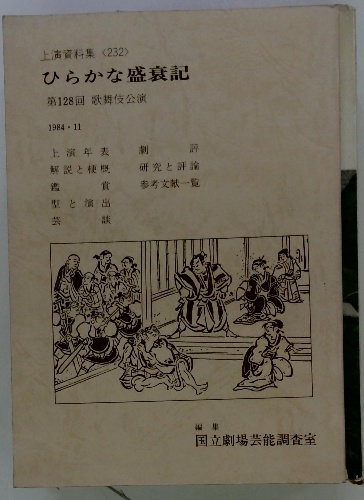 上演資料集〈232〉
ひらかな盛衰記
第128回 歌舞伎公演
1984・11
上演年表 劇評
解説と梗概 研究と評論
鑑賞 参考文献一覧
型と演出
芸談
編集
国立劇場芸能調査室